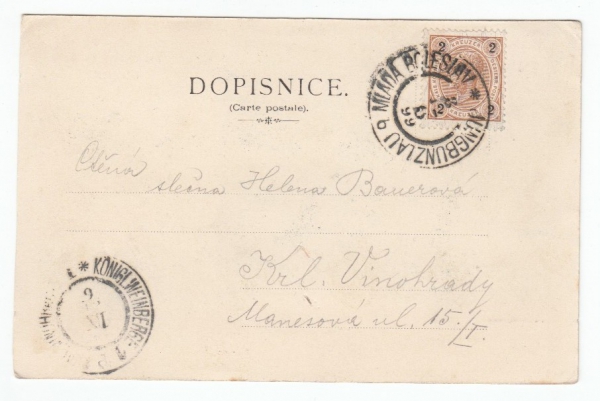 DOPISNICE.
(Carte postale).
MLADÁ BOLESLAV * JUNGBUNZLAU
99
2 KREUZER 2
2
Ctěná
slečna Helena Bauerová
Krl. Vinohrady
Manesová ul. 15./I.
* KÖNIGL. WEINBERGE 1
XI